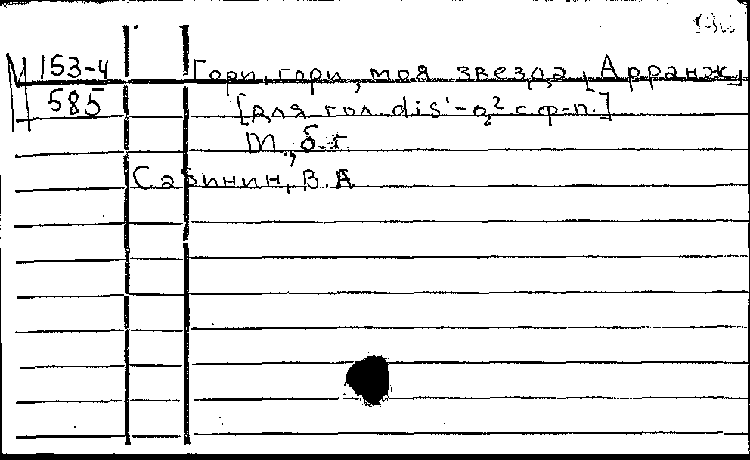 М 153-4 Гори, гори, моя звезда, [Арранж.]
585 [для гол. dis'-a² с ф-п.]
М., б.г.
Сабинин, В.А